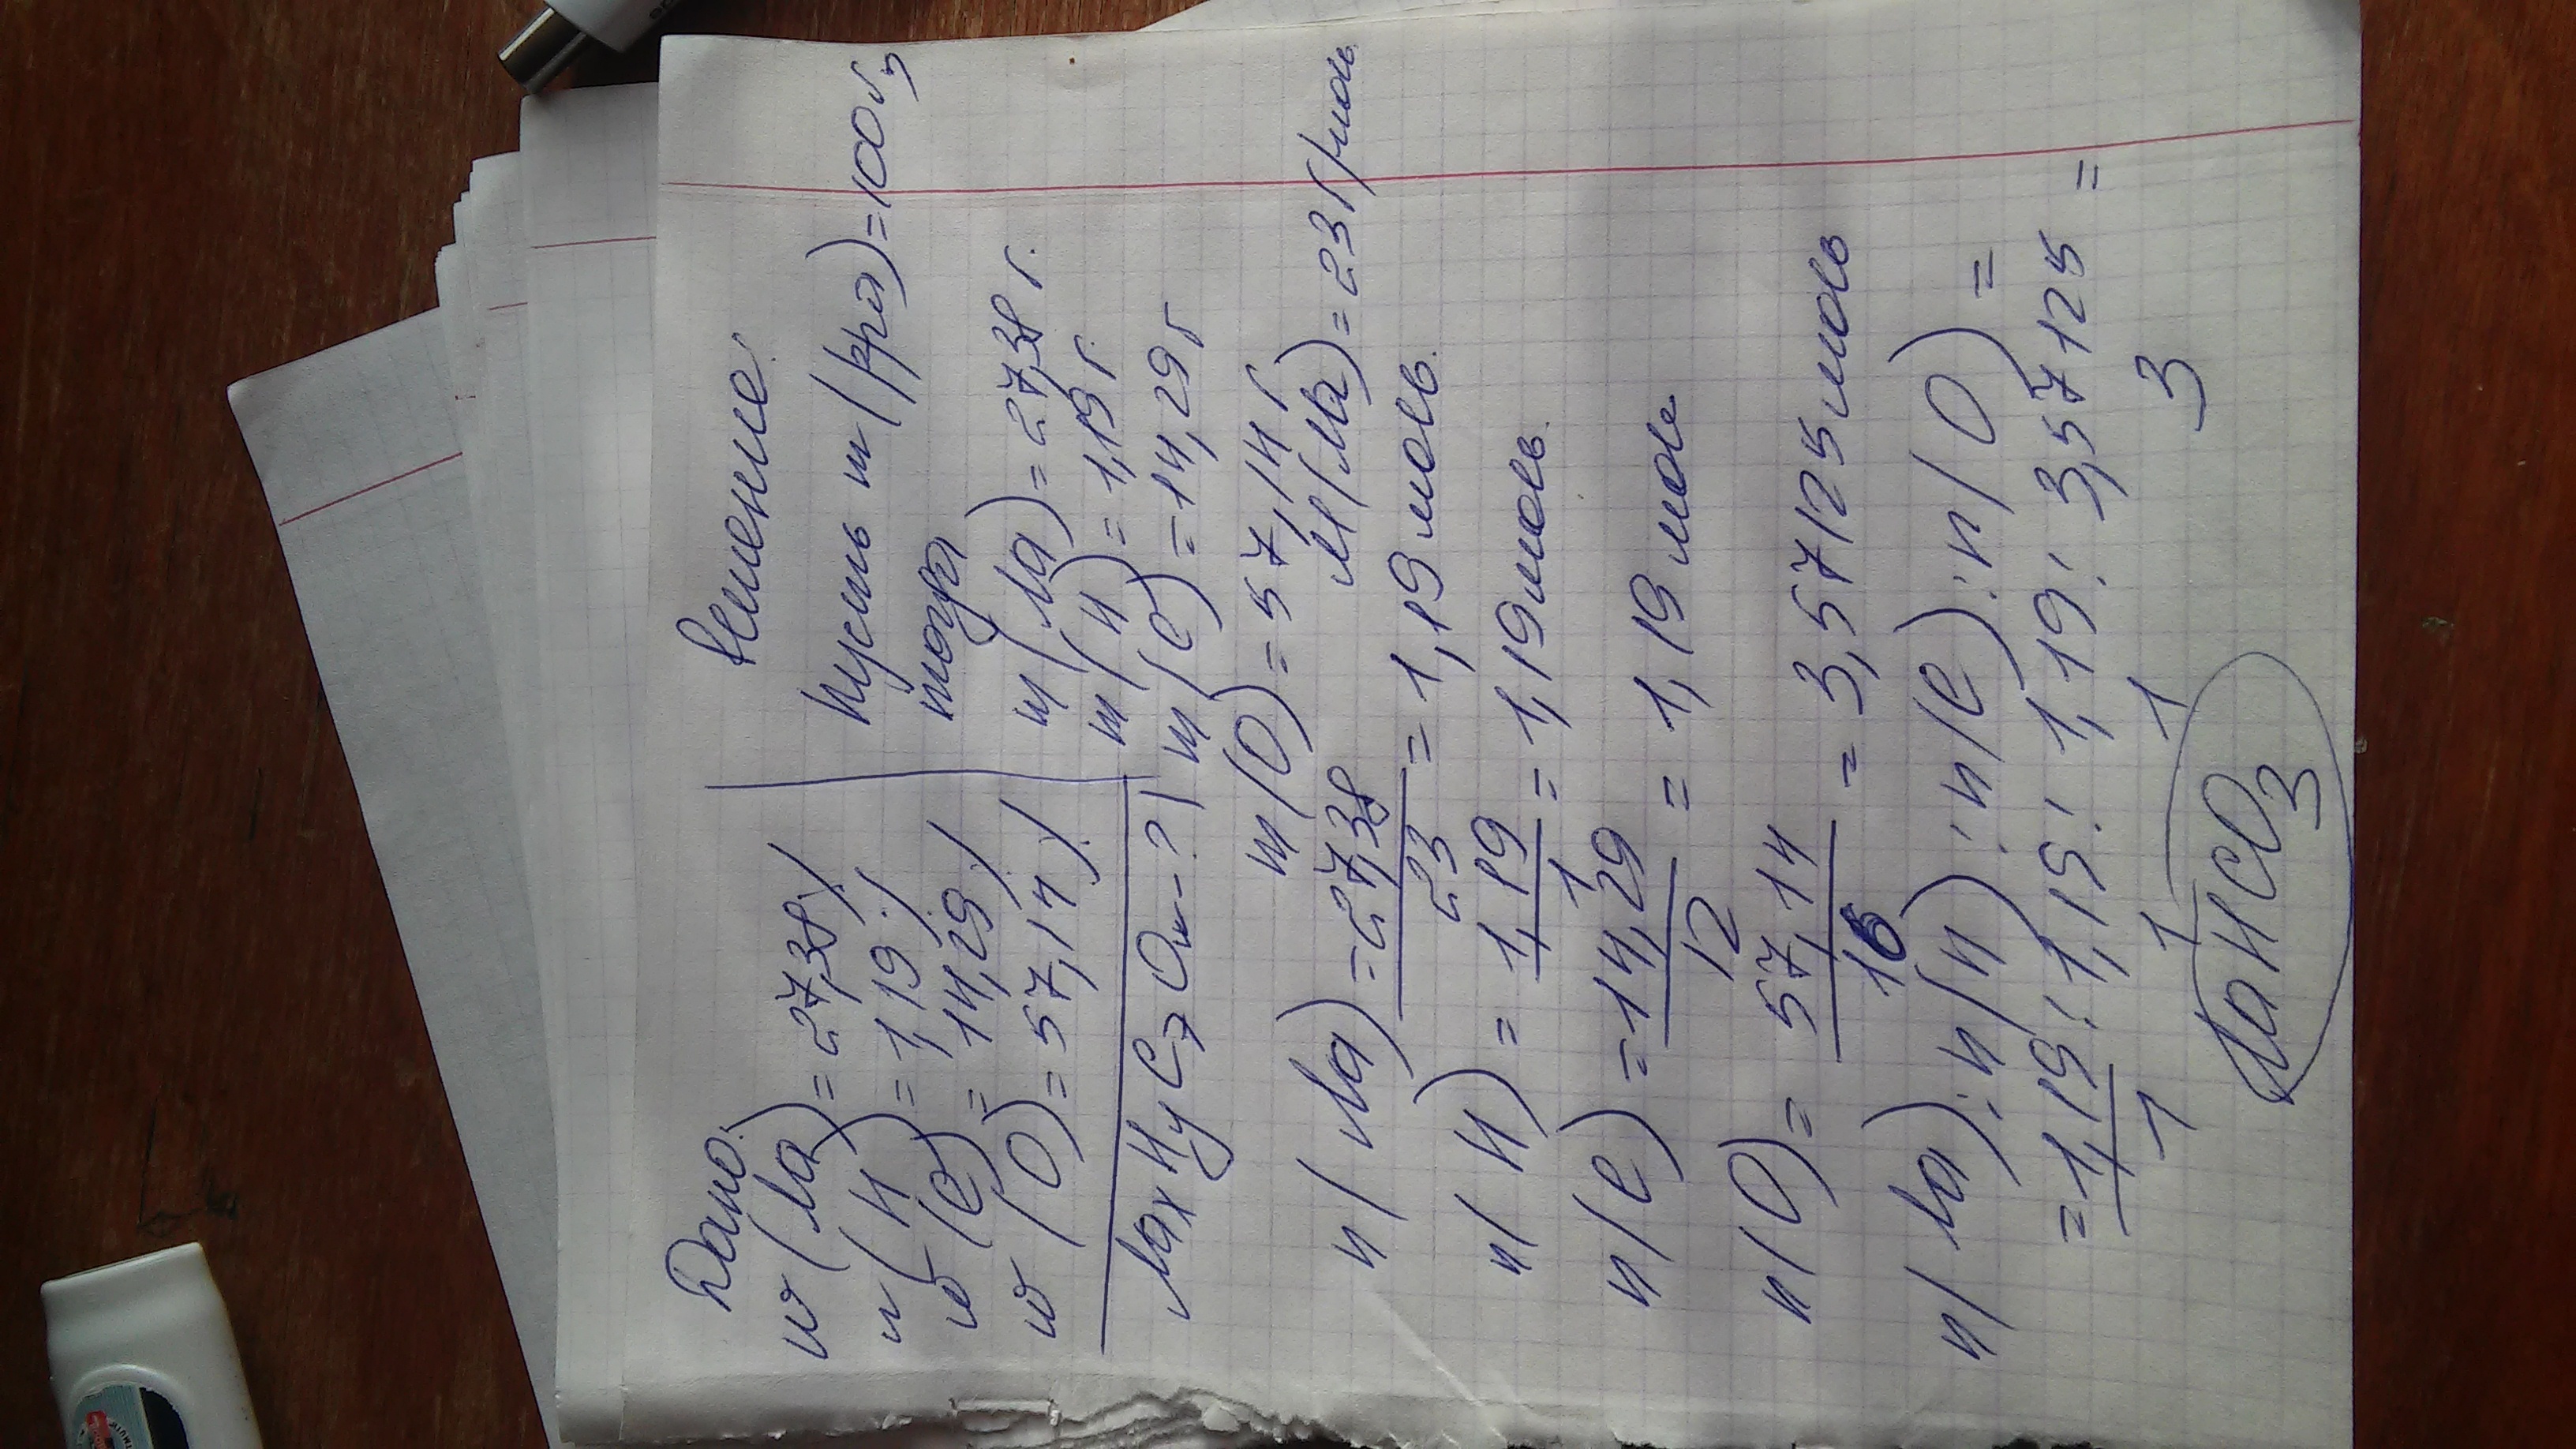 Дано:
w(Na) = 27,38%
w(H) = 1,19%
w(C) = 14,29%
w(O) = 57,14%
NaxHyCzOn-?
Решение:
Пусть m(рра)=100г,
тогда
m(Na) = 27,38 г.
m(H) = 1,19 г.
m(C) = 14,29 г
m(O) = 57,14 г
M(Na) = 23 г/моль
n(Na) = 27,38/23 = 1,19 моль.
n(H) = 1,19/1 = 1,19 моль.
n(C) = 14,29/12 = 1,19 моль
n(O) = 57,14/16 = 3,57125 моль
n(Na) : n(H) : n(C) : n(O) =
= 1,19 : 1,19 : 1,19 : 3,57125 =
1 1 1 3
NaHCO3